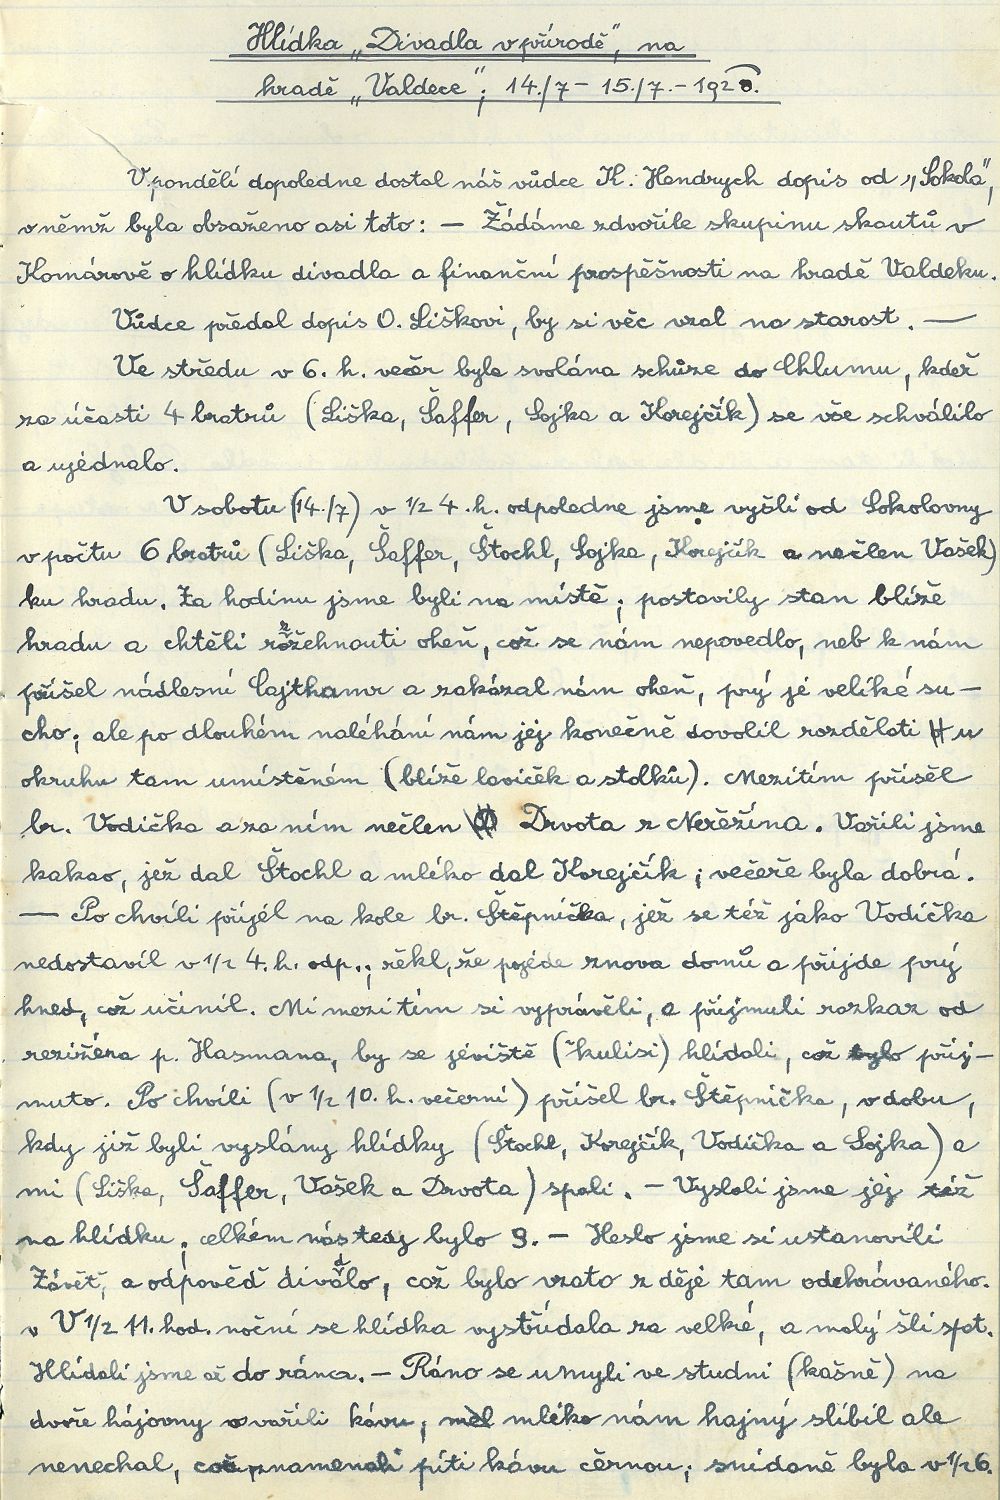 Hlídka „Divadla v přírodě“, na
hradě „Valdece“; 14./7 – 15./7. – 1928.
V pondělí dopoledne dostal náš vůdce K. Hendrych dopis od „Sokola“,
v němž byla obsaženo asi toto: – Žádáme zdvořile skupinu skautů v
Komárově o hlídku divadla a finanční prospěšnosti na hradě Valdeku.
Vůdce předal dopis O. Liškovi, by si věc vzal na starost. —
Ve středu v 6. h. večer byla svolána schůze do Chlumu, kdež
za účasti 4 bratrů (Liška, Šaffer, Sojka a Korejčík) se vše schválilo
a ujednalo.
V sobotu (14./7) v 1/2 4. h. odpoledne jsme vyšli od Sokolovny
v počtu 6 bratrů (Liška, Šaffer, Štochl, Sojka, Korejčík a nečlen Vašek)
ku hradu. Za hodinu jsme byli na místě; postavily stan blíže
hradu a chtěli rozžehnouti oheň, což se nám nepovedlo, neb k nám
přišel nádlesní Cajthamr a zakázal nám oheň, prý jé veliké su–
cho; ale po dlouhém naléhání nám jej konečně dovolil rozdělati u
okruhu tam umístěném (blíže laviček a stolků). Mezitím přišel
br. Vodička a za ním nečlen Drvota z Neřežína. Vařili jsme
kakao, jež dal Štochl a mléko dal Korejčík; večeře byla dobrá.
— Po chvíli přijel na kole br. Štěpnička, jež se též jako Vodička
nedostavil v 1/2 4. h. odp.; řekl, že pojede znova domů a přijde prý
hned, což učinil. Mi mezitím si vyprávěli, a přijmuli rozkaz od
režiséra p. Hasmana, by se jéviště (kulisi) hlídali, což bylo přij–
muto. Po chvíli (v 1/2 10. h. večerní) přišel br. Štěpnička, v dobu,
kdy již byli vyslány hlídky (Štochl, Korejčík, Vodička a Sojka) a
mi (Liška, Šaffer, Vašek a Drvota) spali. – Vyslali jsme jej též
na hlídku; celkém nás tedy bylo 9. – Heslo jsme si ustanovili
Závěť, a odpověď divadlo, což bylo vzato z děje tam odehrávaného.
V 1/2 11. hod. noční se hlídka vystřídala za velké, a malý šli spat.
Hlídali jsme až do rána. – Ráno se umyli ve studni (kašně) na
dvoře hájovny a vařili kávu; měl mléko nám hajný slíbil ale
nenechal, což znamenali píti kávu černou; snídaně byla v 1/2 6.